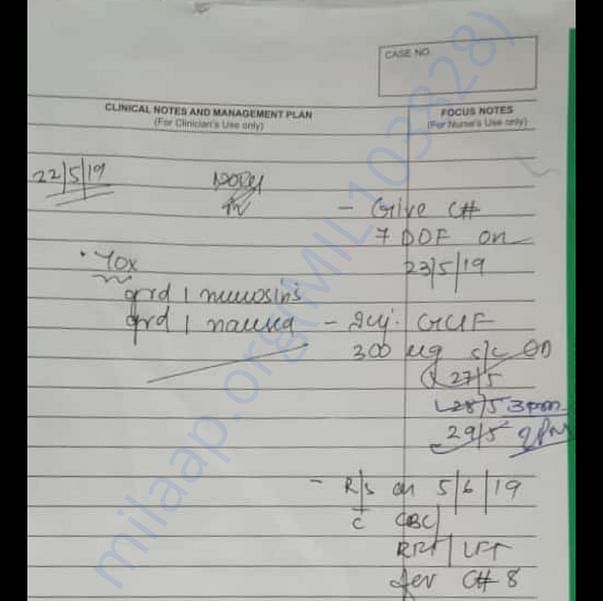 CASE NO.
CLINICAL NOTES AND MANAGEMENT PLAN
(For Clinician's Use only)
FOCUS NOTES
(For Nurse's Use only)
22/5/19
- Give C#
7 DOF on
23/5/19
• Tox
grd 1 mucositis
grd 1 nausea
- Inj. GCSF
300 ug s/c OD
27/5
28/5 3pm
29/5 2pm
- R/s on 5/6/19
c CBC/
RFT/LFT
for C# 8
milaap.org(MIL103828)